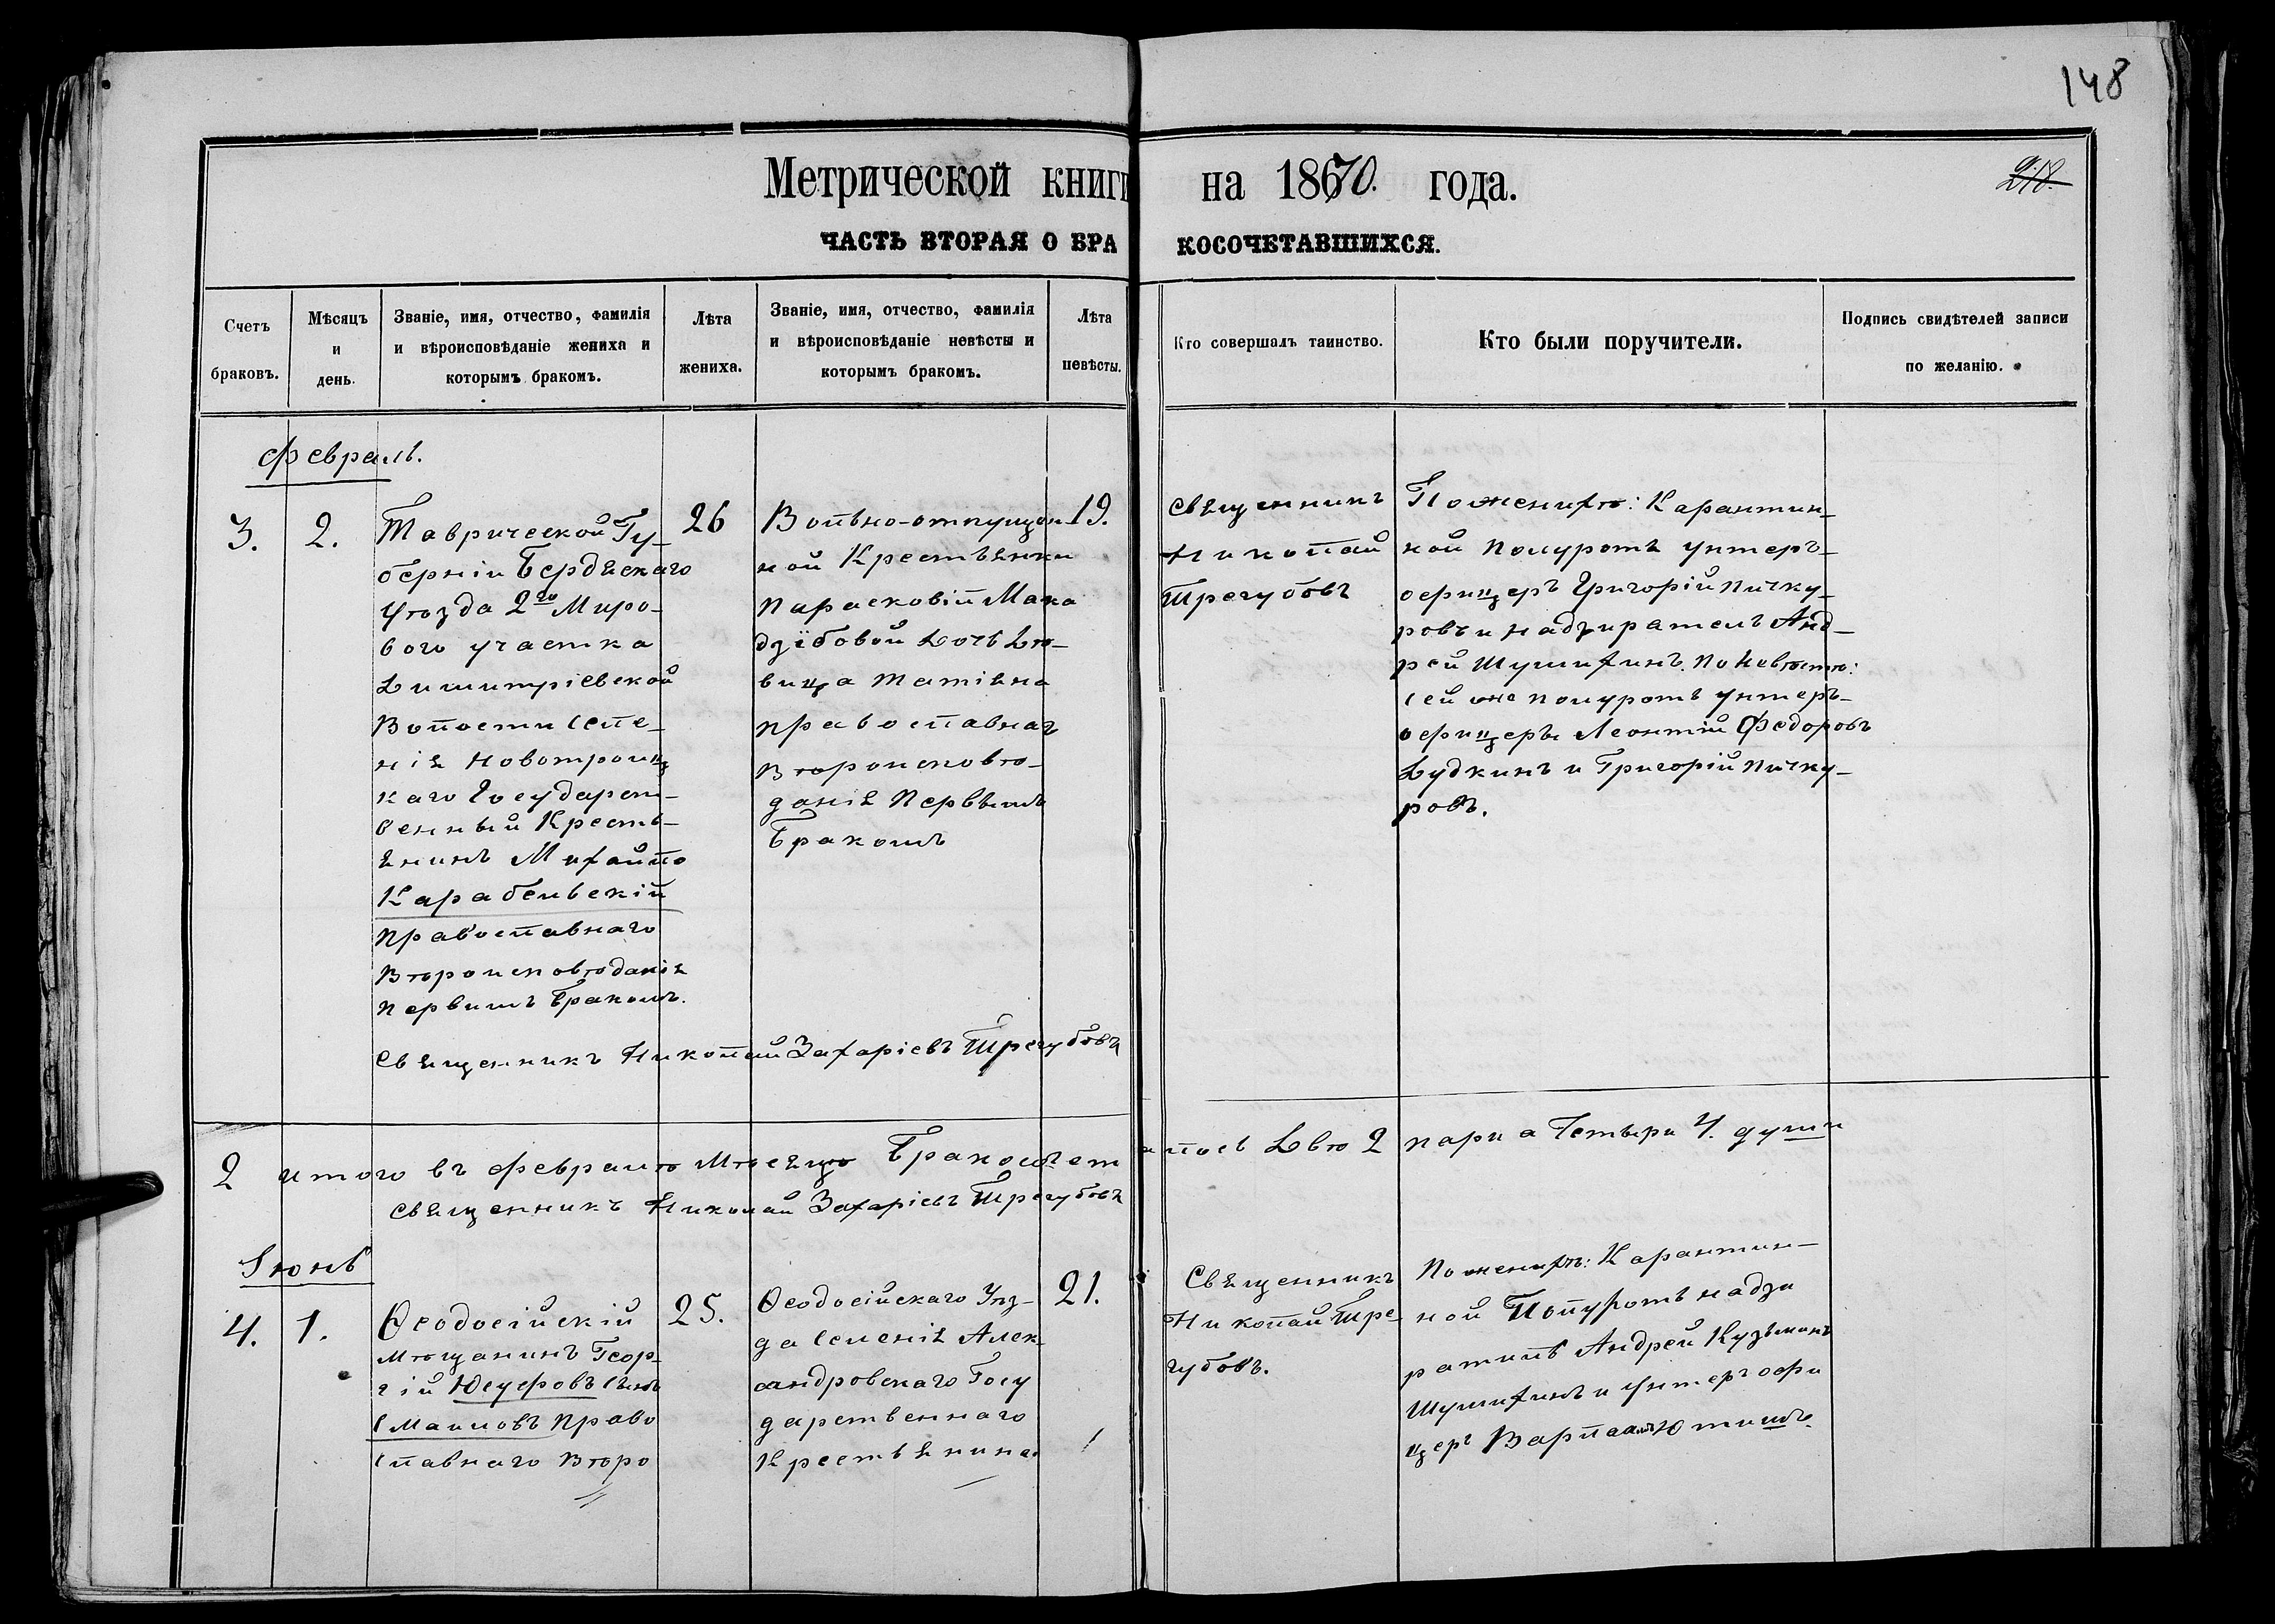 148
Метрической книги на 1870. года.
218.
ЧАСТЬ ВТОРАЯ О БРАКОСОЧЕТАВШИХСЯ.
Счетъ браковъ.
Мѣсяцъ и день.
Званіе, имя, отчество, фамилія
и вѣроисповѣданіе жениха и
которымъ бракомъ.
Лѣта жениха.
Званіе, имя, отчество, фамилія
и вѣроисповѣданіе невѣсты и
которымъ бракомъ.
Лѣта невѣсты.
Кто совершалъ таинство.
Кто были поручители.
Подпись свидѣтелей записи
по желанію.
Февраль.
3.
2.
Таврической Гу-
берніи Бердянскаго
Уѣзда 2го Миро-
вого участка
Димитріевской
Волости Селе-
нія Новотроиц
каго Государст-
венный Кресть-
янинъ Михайло
Карабельскій
Православнаго
Вѣроисповѣданія
первымъ бракомъ.
26
Вольно-отпущен
ной Крестьянки
Парасковіи Мака
дзібовой дочь дѣ-
вица Татіяна
православнаг
Вѣроисповѣ-
данія Первымъ
Бракомъ
19.
Священникъ
Николай
Трегубовъ
По женихѣ: Карантин-
ной полуротѣ унтеръ-
офицеръ Григорій Пичку-
ровъ и надзиратель Анд-
рей Шумихинъ. по Невѣстѣ:
Сей же полуротѣ унтеръ-
офицеры Леонтій Федоровъ
Дудкинъ и Григорій Пичку-
ровъ.
Священникъ Николай Захаріевъ Трегубовъ
2 итого въ февралѣ Мѣсяцѣ Бракосочет алось Двѣ 2 пари а Четыри 4. души
Священникъ Николай Захаріевъ Трегубовъ
Іюнь
4.
1.
Ѳеодосійскій
Мѣщанинъ Геор-
гій Юсуфовъ Сынъ
Смаиловъ Право
славнаго Вѣро
25.
Ѳеодосійскаго Уѣз-
да Селенія Алек-
андровскаго Госу
дарственнаго
Крестьянина
21.
Священникъ
Николай Тре
губовъ.
По женихѣ: Карантин-
ной Полуротѣ надзи
ратиль Андрей Кузьминъ
Шумихинъ и Унтеръ офи
церъ Варлаамъ